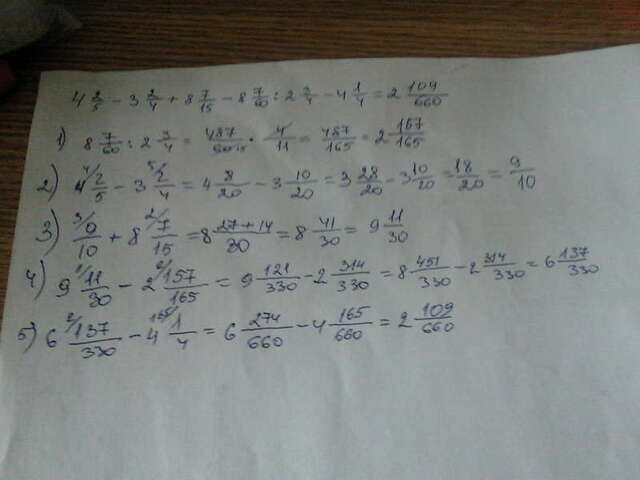 4 2/5 − 3 2/4 + 8 7/15 − 8 7/60 : 2 3/4 − 4 1/4 = 2 109/660
1) 8 7/60 : 2 3/4 = 487/60 15 · 4/11 = 487/165 = 2 157/165
2) 4 4/ 2/5 − 3 5/ 2/4 = 4 8/20 − 3 10/20 = 3 28/20 − 3 10/20 = 18/20 = 9/10
3) 3/ 9/10 + 8 2/ 7/15 = 8 27+14/30 = 8 41/30 = 9 11/30
4) 9 11/30 − 2 2/ 157/165 = 9 121/330 − 2 314/330 = 8 451/330 − 2 314/330 = 6 137/330
5) 6 2/ 137/330 − 4 165/ 1/4 = 6 274/660 − 4 165/660 = 2 109/660